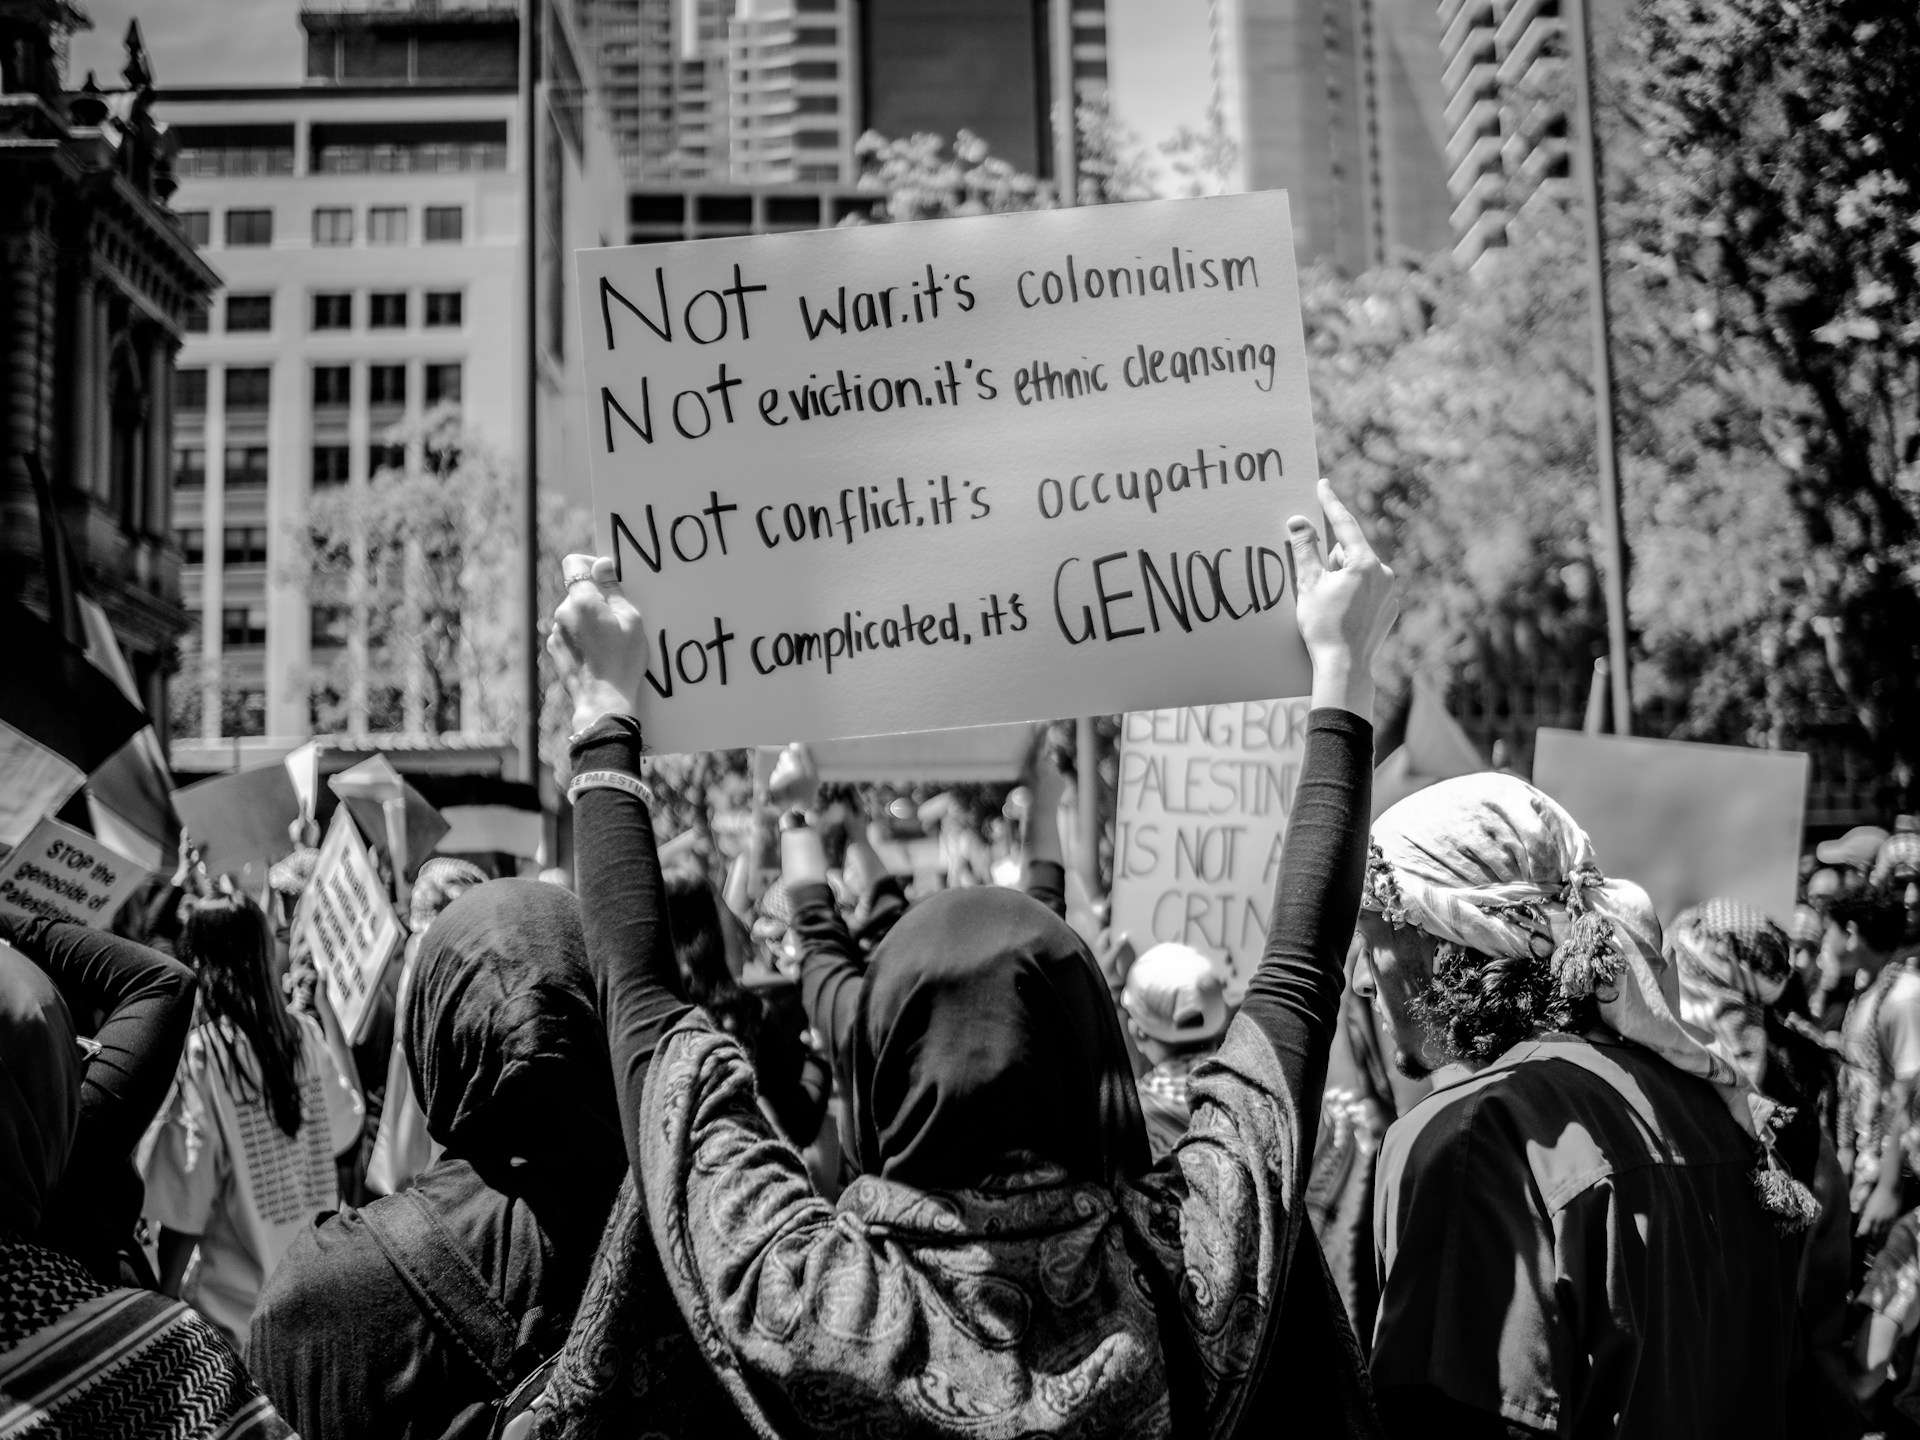 Not war.it's colonialism
Not eviction.it's ethnic cleansing
Not conflict,it's occupation
Not complicated, it's GENOCID
PALESTINE
BEING BOR
PALESTIN
IS NOT A
CRIM
STOP the
genocide of
Palestinians